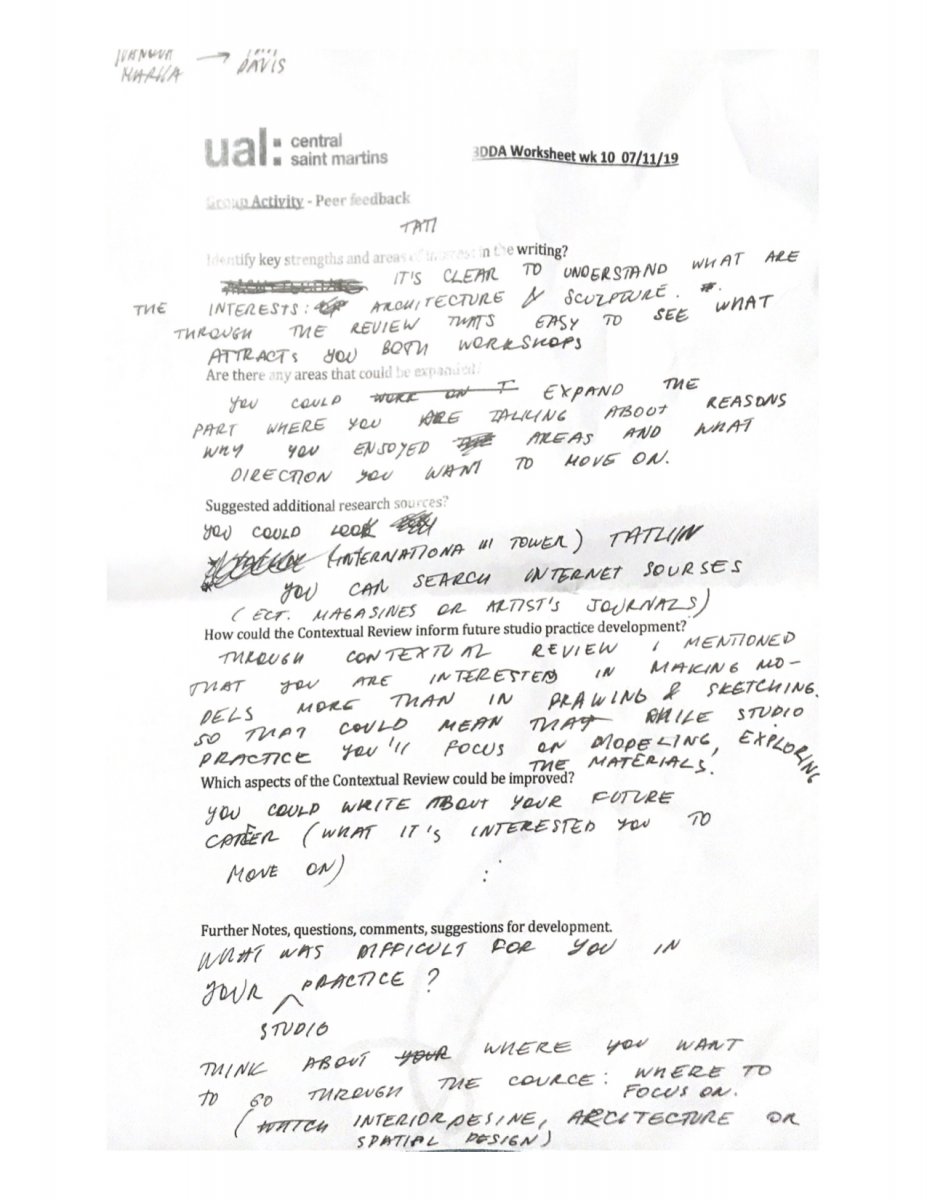 IVANOVA → TATI
MARIIA DAVIS
ual: central
saint martins
3DDA Worksheet wk 10 07/11/19
Group Activity - Peer feedback
TATI
Identify key strengths and areas of interest in the writing?
IT'S CLEAR TO UNDERSTAND WHAT ARE
THE INTERESTS: ARCHITECTURE & SCULPTURE.
THROUGH THE REVIEW THATS EASY TO SEE WHAT
ATTRACTS YOU BOTH WORKSHOPS
Are there any areas that could be expanded?
YOU COULD WORK ON T EXPAND THE
PART WHERE YOU ARE TALKING ABOUT REASONS
WHY YOU ENJOYED AREAS AND WHAT
DIRECTION YOU WANT TO MOVE ON.
Suggested additional research sources?
YOU COULD LOOK
(INTERNATIONA III TOWER) TATLIN
YOU CAN SEARCH INTERNET SOURSES
(ECT. MAGASINES OR ARTIST'S JOURNALS)
How could the Contextual Review inform future studio practice development?
THROUGH CONTEXTUAL REVIEW I MENTIONED
THAT YOU ARE INTERESTED IN MAKING MO-
DELS MORE THAN IN DRAWING & SKETCHING.
SO THAT COULD MEAN THAT WHILE STUDIO
PRACTICE YOU'll FOCUS ON MODELING, EXPLORING
THE MATERIALS.
Which aspects of the Contextual Review could be improved?
YOU COULD WRITE ABOUT YOUR FUTURE
CAREER (WHAT IT'S INTERESTED YOU TO
MOVE ON)
Further Notes, questions, comments, suggestions for development.
WHAT WAS DIFFICULT FOR YOU IN
YOUR PRACTICE?
STUDIO
THINK ABOUT YOUR WHERE YOU WANT
TO GO THROUGH THE COURCE: WHERE TO
FOCUS ON.
( INTERIOR DESINE, ARCITECTURE OR
SPATIAL DESIGN)